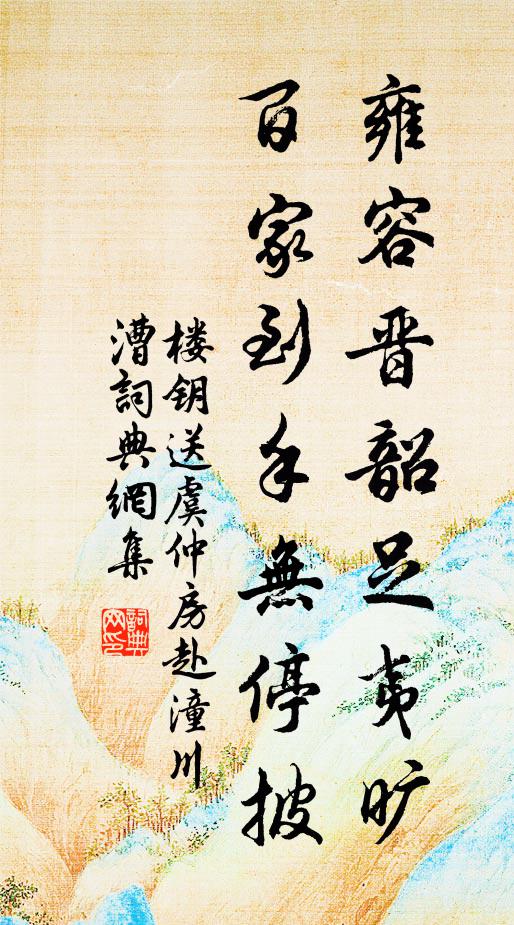 雍容晋韶足夷旷
百家到手無停披
楼钥送虞仲房赴潼川
漕詞典網集
詞典